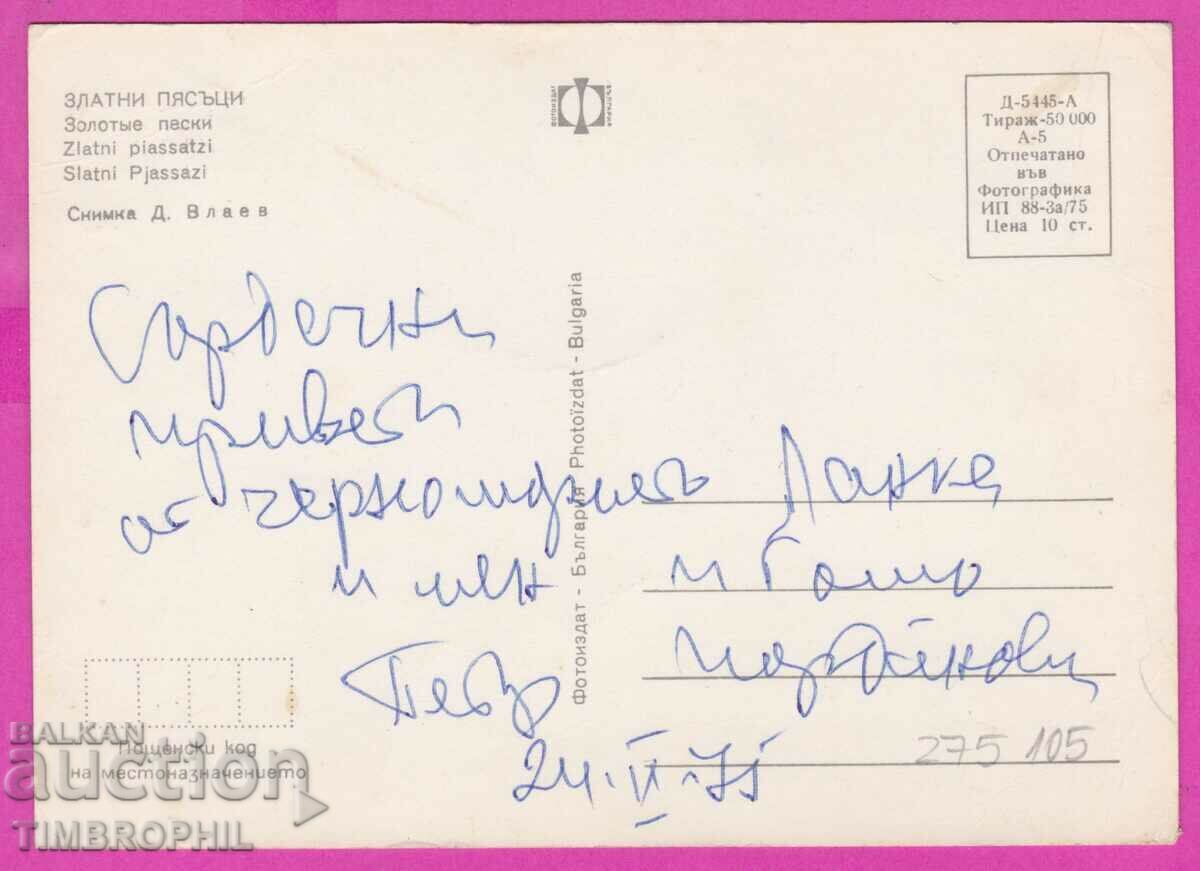 ЗЛАТНИ ПЯСЪЦИ
Золотые пески
Zlatni piassatzi
Slatni Pjassazi
Снимка Д. Влаев
ФОТОИЗДАТ
БЪЛГАРИЯ
Д-5445-А
Тираж-50 000
А-5
Отпечатано
във
Фотографика
ИП 88-3а/75
Цена 10 ст.
Сърдечни
привети
от
и мен
Петър
24·VI·75
Фотоиздат - България Photoïzdat - Bulgaria
Ланка
и Гошо
Йорданови
275 105
Пощенски код
на местоназначението
BALKAN
auction
TIMBROPHIL